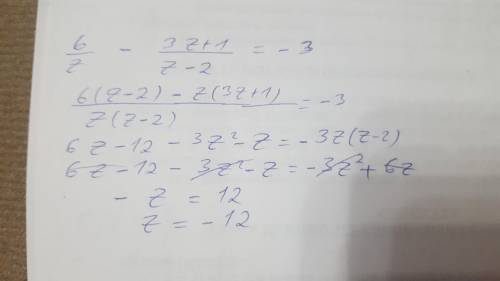 6/z - (3z+1)/(z-2) = -3
(6(z-2) - z(3z+1))/(z(z-2)) = -3
6z-12 - 3z²-z = -3z(z-2)
6z-12 - 3z²-z = -3z²+6z
- z = 12
z = -12